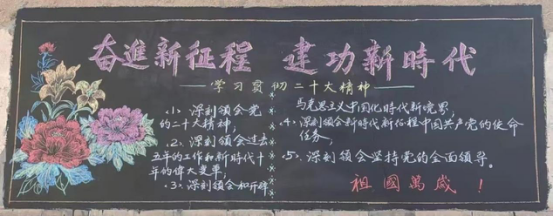 奋進新征程 建功新時代
学习贯彻二十大精神
1、深刻领会党
的二十大精神；
2、深刻领会过去
五年的工作和新時代十
年的偉大变革；
3、深刻领会和开辟
马克思主义中国化時代新境界；
4、深刻领会新時代新征程中国共产党的使命
任务；
5、深刻领会坚持党的全面领导。
祖國萬歲！